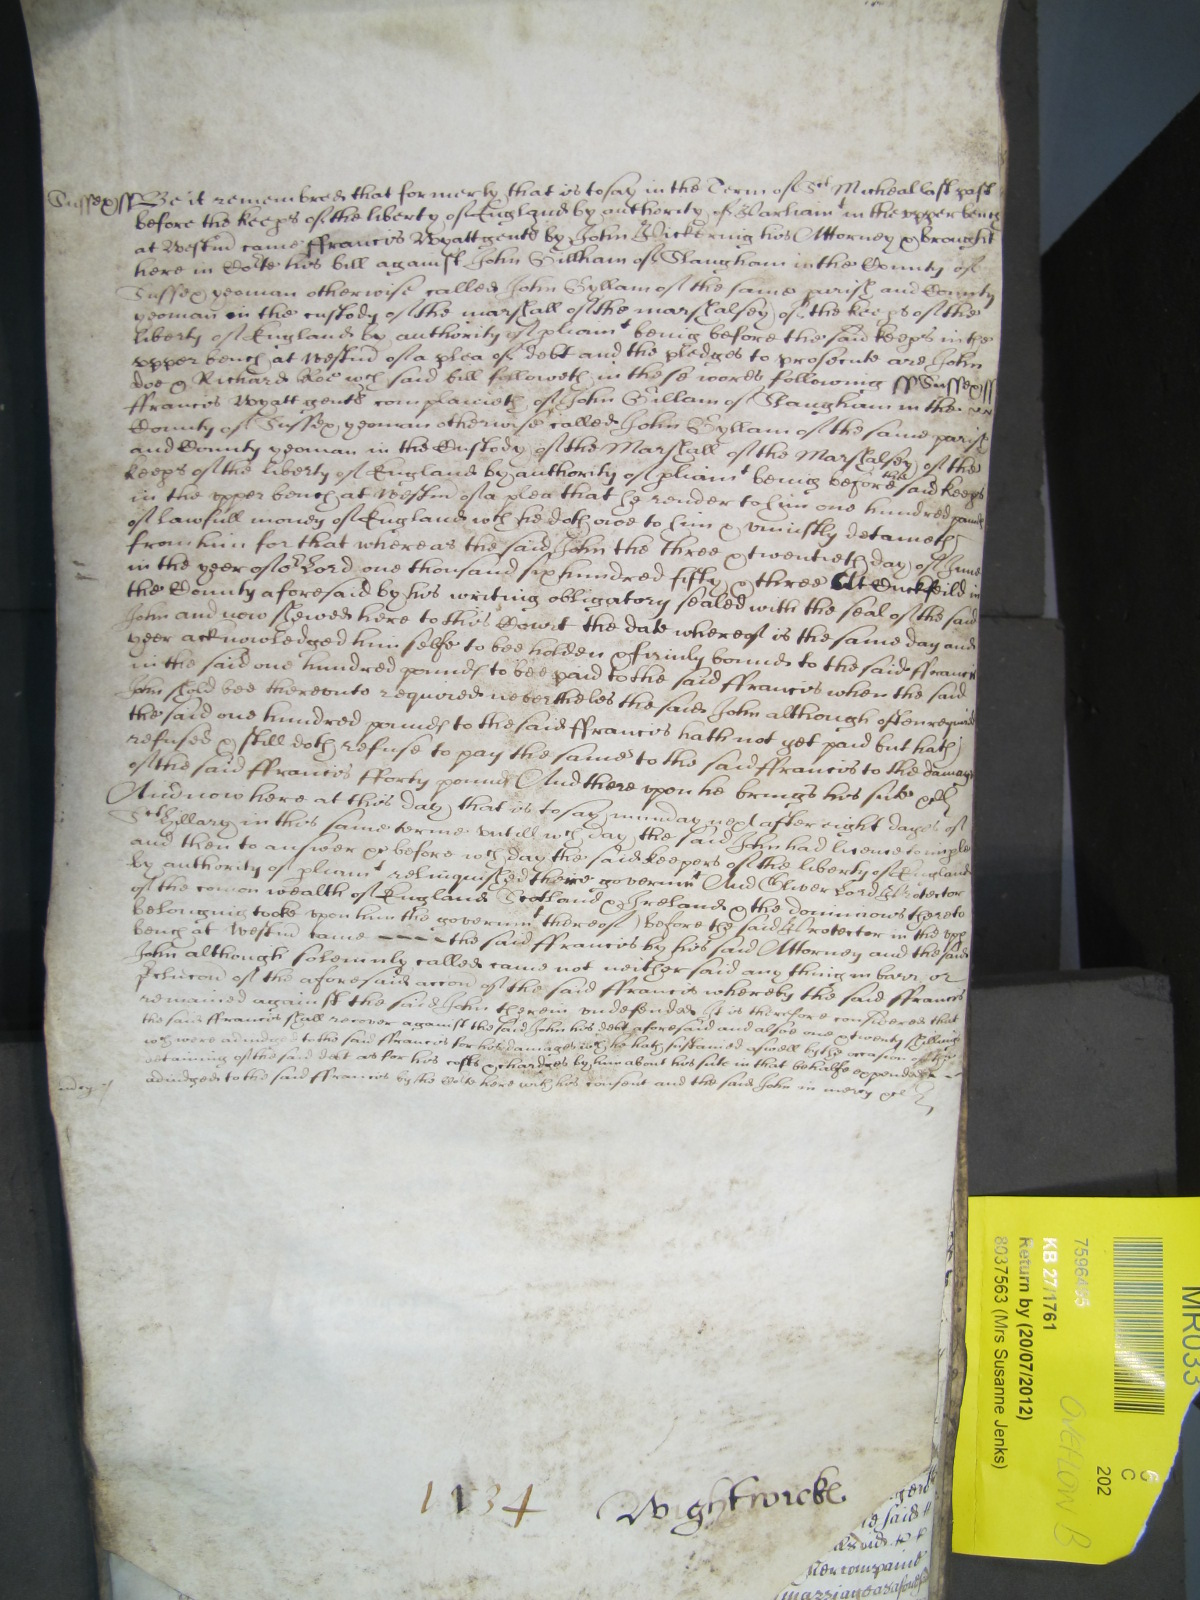 Sussex ss Be it remembred that formerly that is to say in the Term of St Micheal last past
before the keeps of the liberty of England by authority of Parliamt in the upper bench
at Westm came ffrancis Wyatt gent by John Pickering his Attorney & brought
here in Corte his bill against John Gillham of Slaugham in the County of
Sussex yeoman otherwise called John Gyllam of the same parish and County
yeoman in the custody of the marshall of the marshalsey of the keeps of the
liberty of England by authority of pliamt being before the said keeps in the
upper bench at Westm of a plea of debt and the pledges to prosecute are John
doe & Richard Roe wch said bill followeth in these words following ss Sussex ss
ffrancis Wyatt gent complaineth of John Gillam of Slaugham in the
County of Sussex yeoman otherwise called John Gyllam of the same parish
and County yeoman in the Custody of the Marshall of the Marshalsey of the
keeps of the liberty of England by authority of pliamt being before the said keeps
in the upper bench at Westm of a plea that he render to him one hundred pounds
of lawfull money of England wch he doth owe to him & uniustly detaineth
from him for that whereas the said John the three & twentieth day of June
in the yeer of or Lord one thousand six hundred fifty & three At Cuckfeild in
the County aforesaid by his writing obligatory sealed with the seal of the said
John and now shewed here to this Cowrt the date whereof is the same day and
yeer acknowledged himselfe to bee holden & firmly bound to the said ffrancis
in the said one hundred pounds to bee paid to the said ffrancis when the said
John shold bee thereonto required neverthelès the said John although often required
the said one hundred pounds to the said ffrancis hath not yet paid but hath
refused & still doth refuse to pay the same to the said ffrancis to the damage
of the said ffrancis fforty pounds And there upon he brings his sute &c
And now here at this day that is to say munday next after eight dayes of
St Hillary in this same terme untill wch day the said John had licence to imple
and then to answer &c before wch day the said keepers of the liberty of England
by authority of pliamt relinquished there governmt And Oliver Lord Protector
of the comon wealth of England Scotland & Ireland & the dominions thereto
belonging tooke upon him the governmt thereof) before the said Protector in the upp
bench at Westm came ---- the said ffrancis by his said Attorney and the said
John although solemnly called came not neither said any thing in barr or
pclucon of the aforesaid accon of the said ffrancis whereby the said ffrancis
remained against the said John therein undefended It is therefore considered that
the said ffrancis shall recover against the said John his debt aforesaid and alsoe one & twenty shillings
wch were adiudged to the said ffrancis for his damages wch he hath sustained aswell by the occasion of the
detaining of the said debt as for his costs & chardges by him about his sute in that behalfe expended
adiudged to the said ffrancis by the Corte here with his consent and the said John in mercy &c
1134 Wightwicke
MR033
7596495
KB 27/1761
Return by (20/07/2012)
8037563 (Mrs Susanne Jenks)
OVEFLOW B
6
C
202